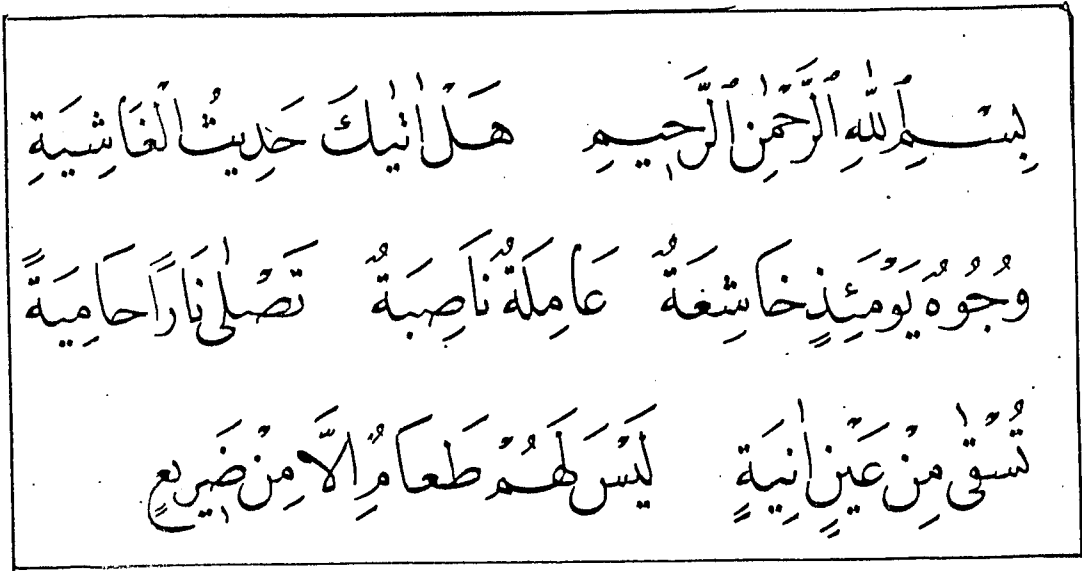 بِسْمِ ٱللّٰهِ ٱلرَّحْمٰنِ ٱلرَّحِيمِ هَلْ اَتٰيكَ حَدِيثُ الْغَاشِيَةِ
وُجُوهٌ يَوْمَئِذٍ خَاشِعَةٌ عَامِلَةٌ نَاصِبَةٌ تَصْلٰى نَارًا حَامِيَةً
تُسْقٰى مِنْ عَيْنٍ اٰنِيَةٍ لَيْسَ لَهُمْ طَعَامٌ اِلَّا مِنْ ضَرِيعٍ